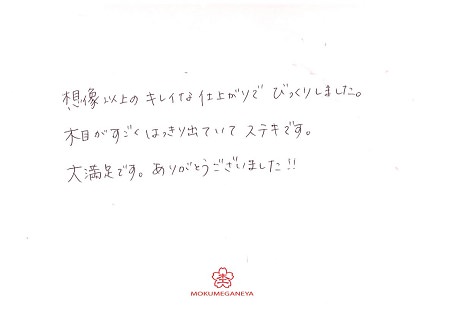 想像以上の キレイな仕上がりで びっくりしました。
木目がすごく はっきり出ていて ステキです。
大満足です。ありがとうございました!!
MOKUMEGANEYA